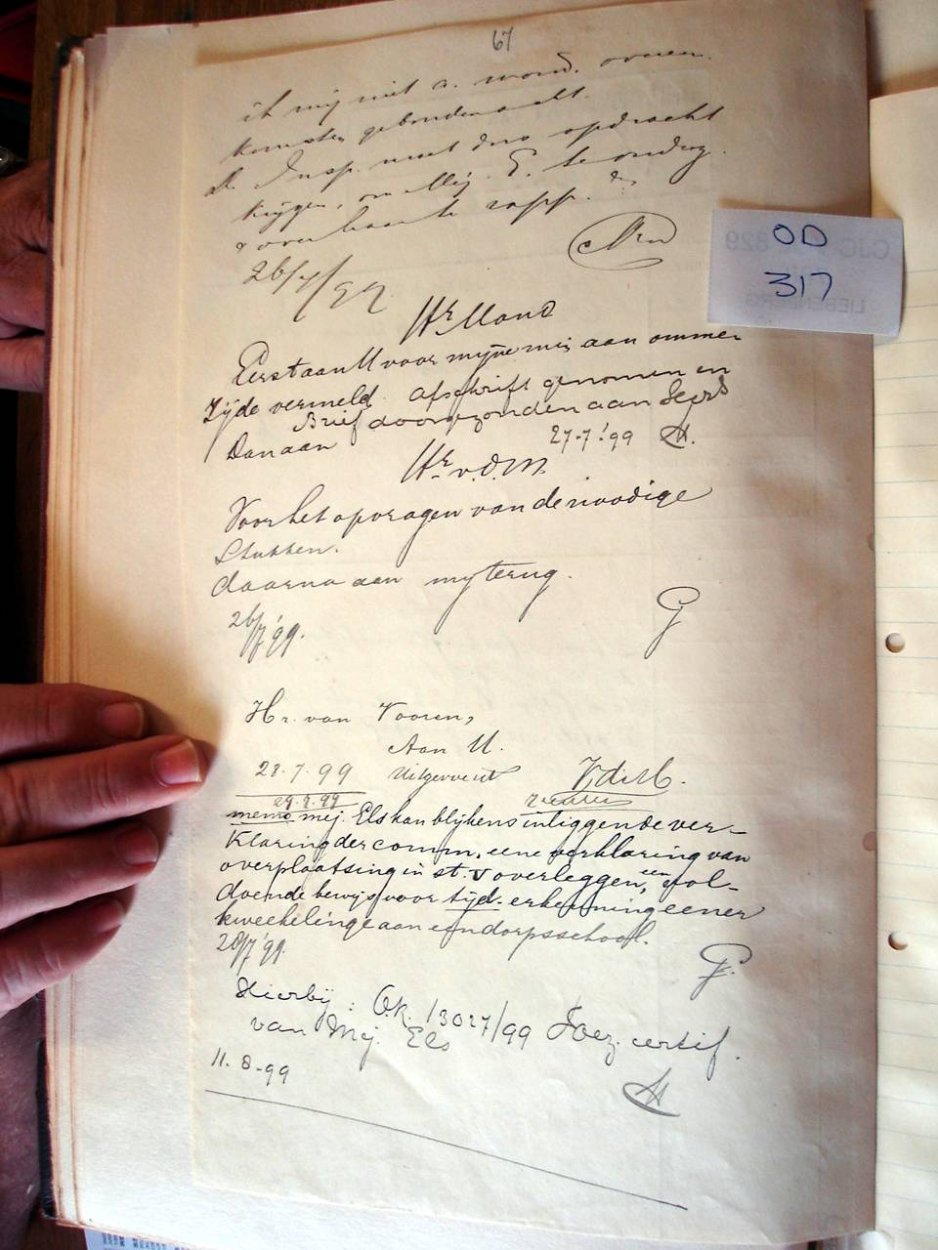 67
ik mij niet a. word. overeen
komsten gebonden acht.
D. Insp. moet dus opdracht
krijgen, om Mej. E. te onderz.
& over haar te rapp.
26/7/99
OD
317
Hr Mond
Eerst aan U voor mijne mis aan ommer
Zijde vermeld. Afschrift genomen en
Brief doorgezonden aan
Dan aan 27-7-'99 H.
Hr v.d.M.
Voor het opvragen van de noodige
Stukken.
daarna aan my terug.
26/7 '99. G
Hr. van Vooren,
Aan U.
28.7.99 Uitgevoerd V.d.M.
29.7.99
memo mej. Els kan blijkens inliggende ver-
klaring der comm. eene verklaring van
overplaatsing in st. V overleggen, een vol-
doende bewijs voor tijd. erkenning eener
kweekelinge aan een dorpsschool.
28/7 '99. G.
Hierbij: G.R. 13027/99 Toez. certif.
van Mej. Els
11.8-99 H